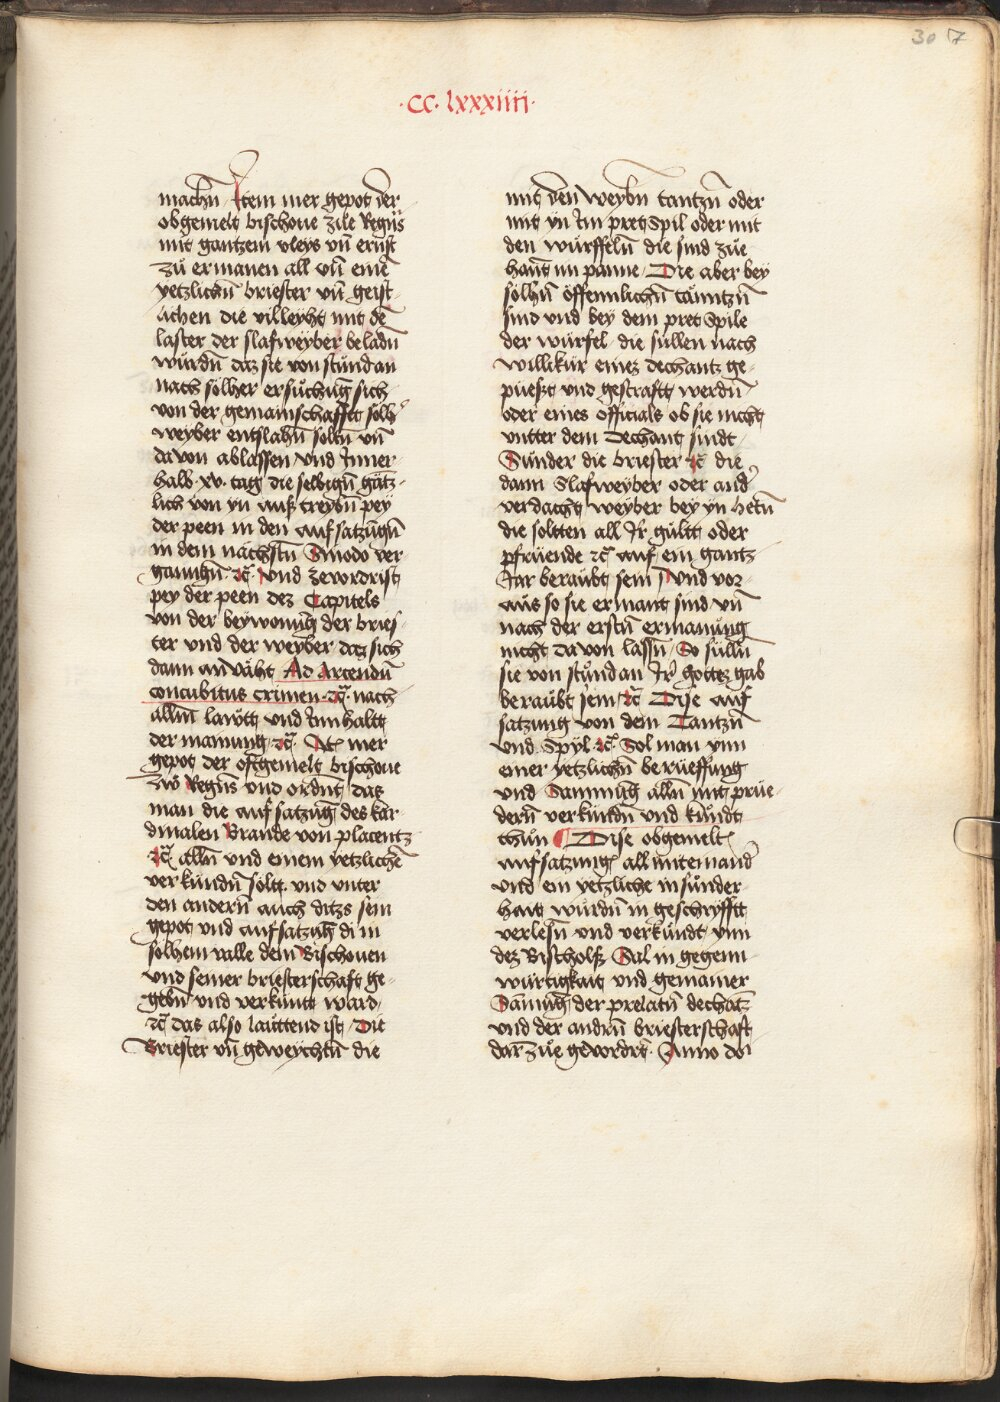 307
·CC·lxxxiiii·
machñ Item mer gepot der
obgemelt bischoue zůe Regñs
mit gantzem vleys vñ ernst
zů ermanen all vñ eineͤ
yetzlichñ briester vñ geist-
lichen die villeyht mit dē
laster der slafweyber beladñ
würdñ daz sie von stůnd an
nach sölher ersůchūg sich
von der gemainschafft sölhˀ
weyber entslahñ soltñ vñ
da von ablassen / vnd Inner-
halb ·xv· tag die selbigñ gātz-
lich von yn auß treybñ pey
der peen in den auf satzūgñ
in dem nächstñ Sinodo ver-
gangñ ·ꝛc̃· vnd zevordrist
pey der peen dez Capitels
von der beywonūg der bries-
ter vnd der weyber daz sich
dann anväht Ad Arcendū
concubitus crimen ·ꝛc̃· nach
alln lawtt vnd Innhaltt
der mainung ·ꝛc̃· Itē mer
gepot der oftgemelt bischoue
zwͦ Regñs vnd ordñt das
man die auf satzūg des kar
dinalen Brande von placentz
ꝛc̃ allñ vnd einem yetzlichē
verkündñ soltt · vnd vnter
den andern̄ auch ditzs sein
gepot vnd auf satzūg di in
solhem valle dem Bischouen
vnd seiner briesterschaft ge-
gebñ vnd verkünt ward /
ꝛc̃ das also lauttend ist / Die
Briester vñ geweychtñ die
mit den weybñ tantzñ oder
mit yn Im pret Spil oder mit
den würffelñ die sind zůe
hañt im panne / Die aber bey
sölhñ öffennlichñ tänntzñ
sind vnd bey dem pret Spile
der würfel · die süllen nach
willikür einez dechantz ge-
püeszt vnd gestrafft werdñ
oder eines officials ob sie nicht
vntter dem Dechant sindt
Sunder die briester ꝛc̃ die
dann Slafweyber oder andˀ
verdacht weyber bey yn hetñ
die soltten all Ir gültt oder
pfrüende ꝛc̃ auf ein gantz
Jar beraubt sein / vnd vor-
aůs so sie ermant sind vñ
nach der erstñ ermanůng
nicht da von lassñ / So sülln
sie von stůnd an Irˀ gottez gab
beraubt sein ꝛc̃ Dise auf
satzung von dem Tantzñ
vnd Spyl ꝛc̃ Sol man ynn
einer yetzlichñ berüeffung
vnd Samnūg alln mit prüe-
dern̄ verkündn vnd kůndt
thůn ¶ Dise obgemelt
aufsatzung all miteinandˀ
vnd ein yetzliche in sůnder-
hait würdñ in geschryfftt
verlesñ vnd verkündt ynn
dez Bischolfs Sal in gegenn-
würtigkait vnd gemainer
Samūg der prelatñ dechātz
vnd der andrñ briesterschaft
dar zůe gevordrt · Anno doī